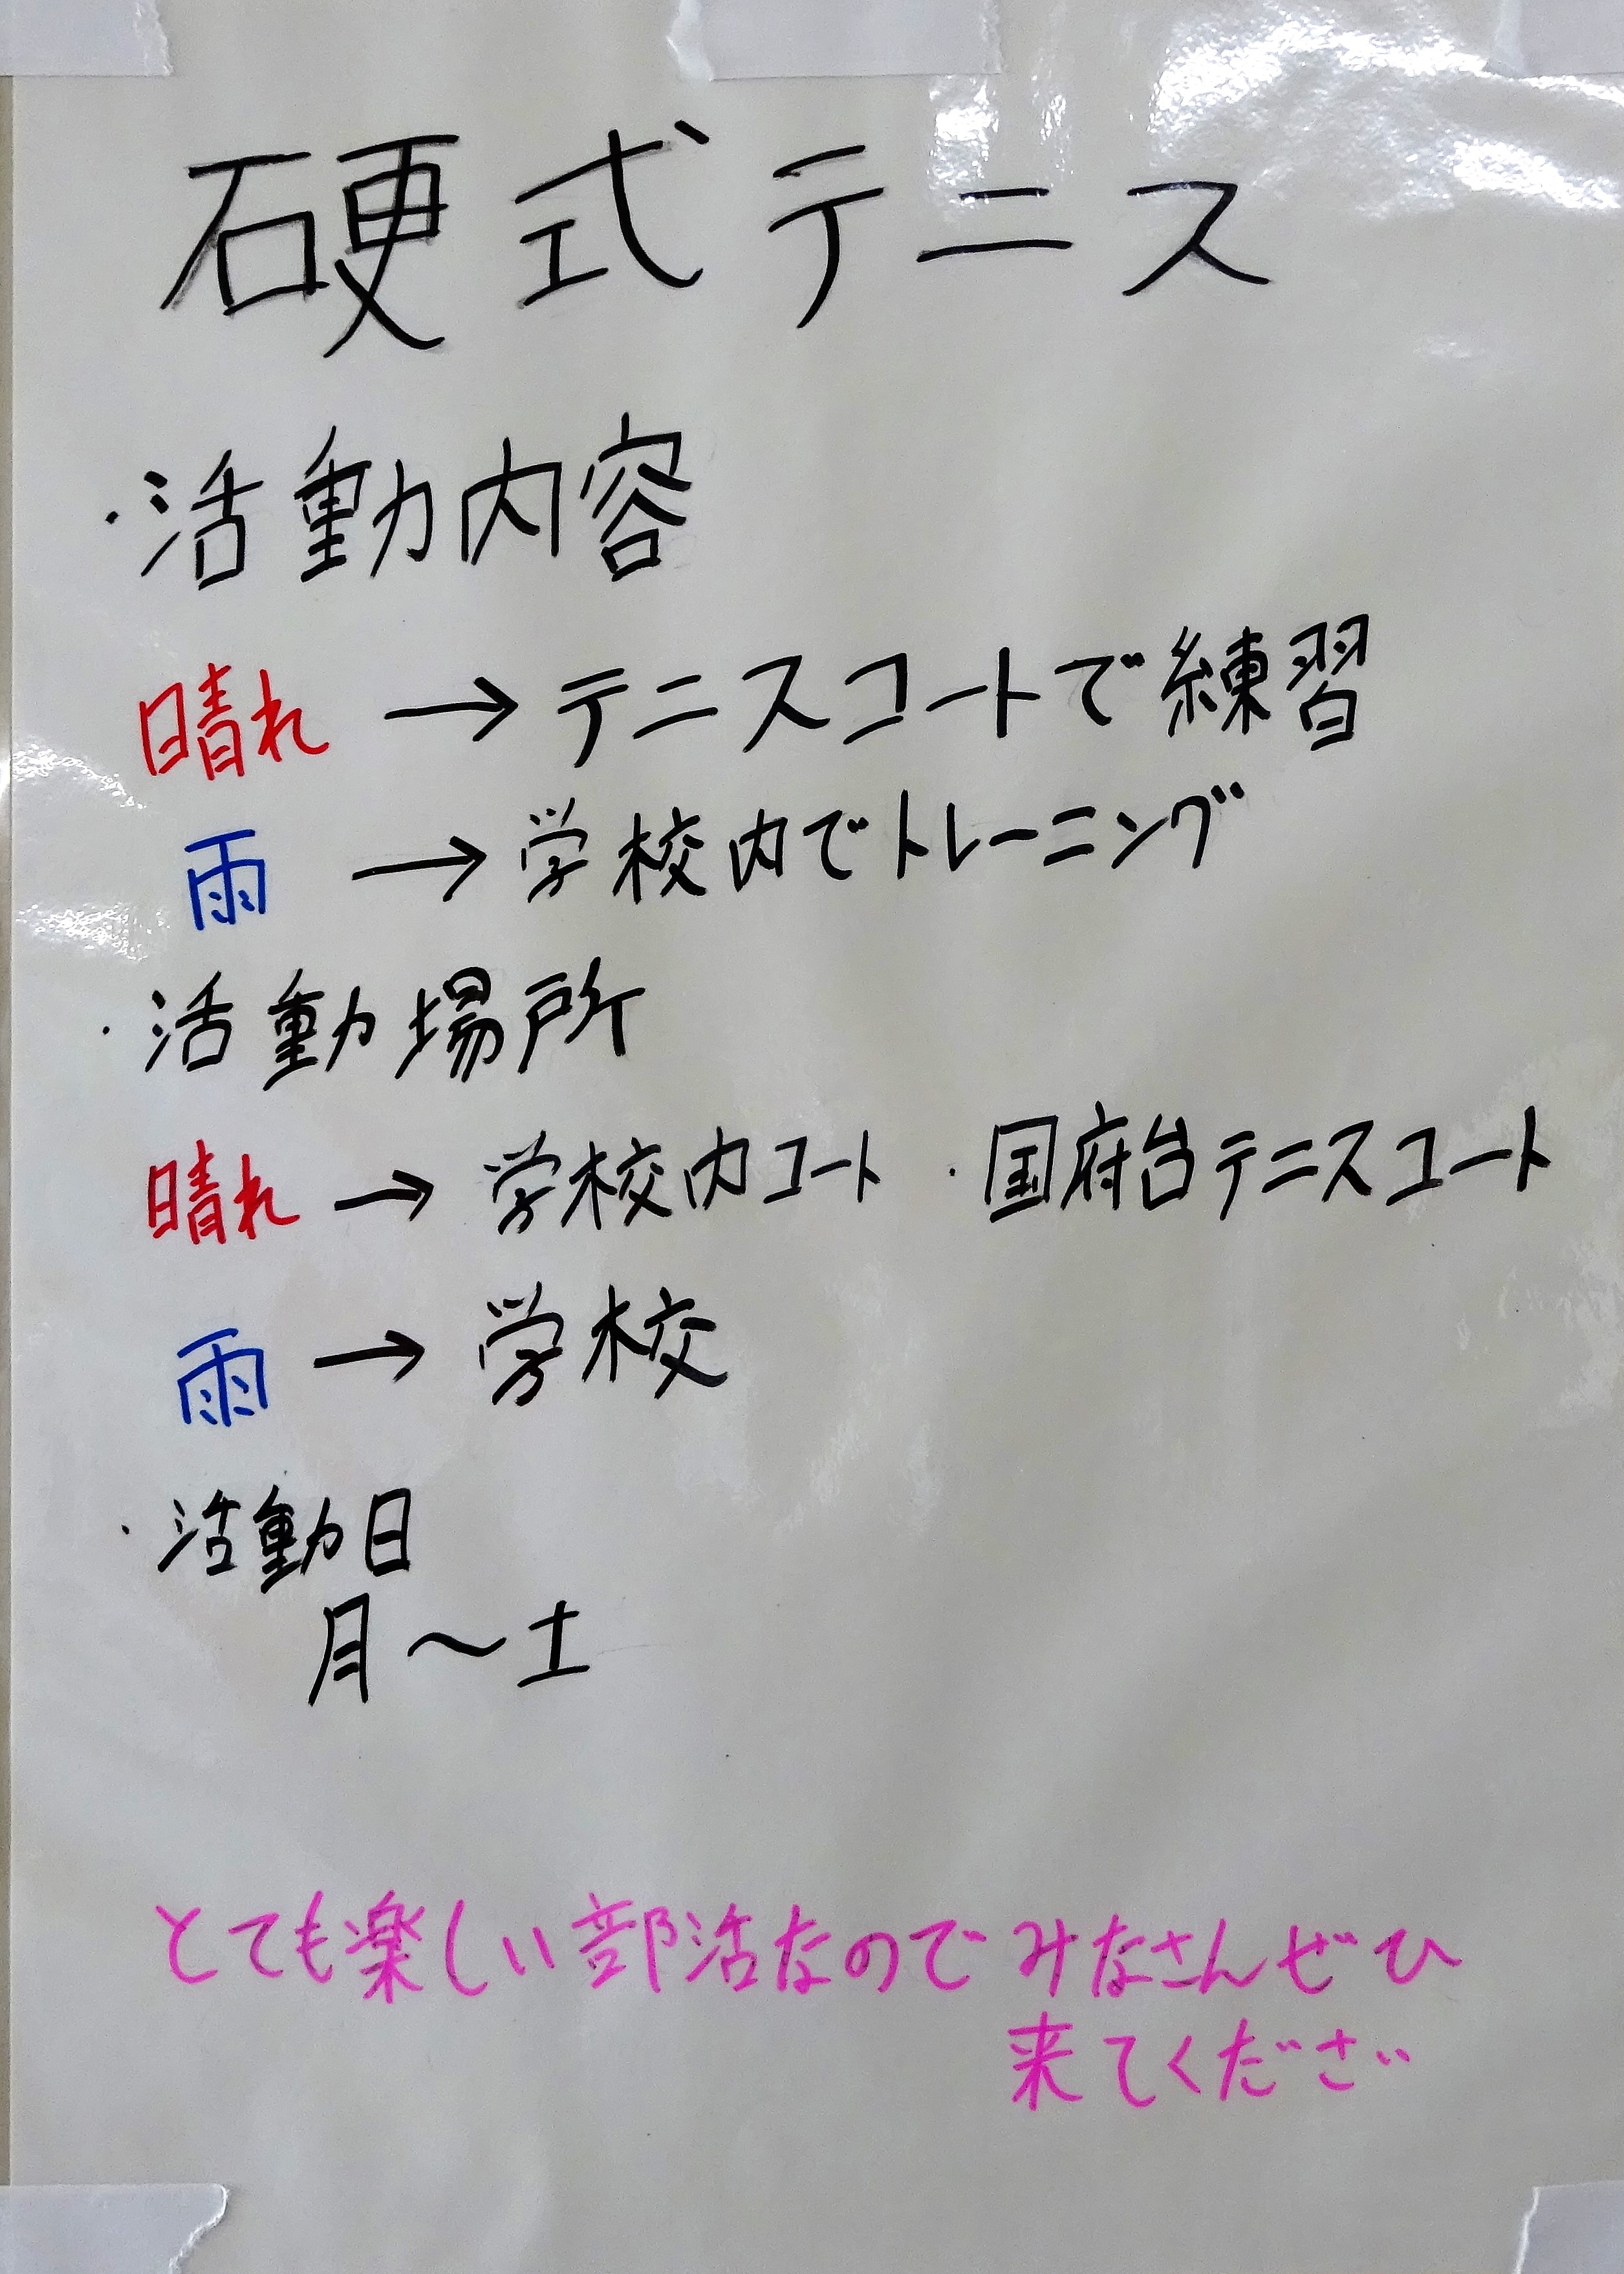 硬式テニス
・活動内容
晴れ → テニスコートで練習
雨 → 学校内でトレーニング
・活動場所
晴れ → 学校内コート ・国府台テニスコート
雨 → 学校
・活動日
月〜土
とても楽しい部活なのでみなさんぜひ
来てください